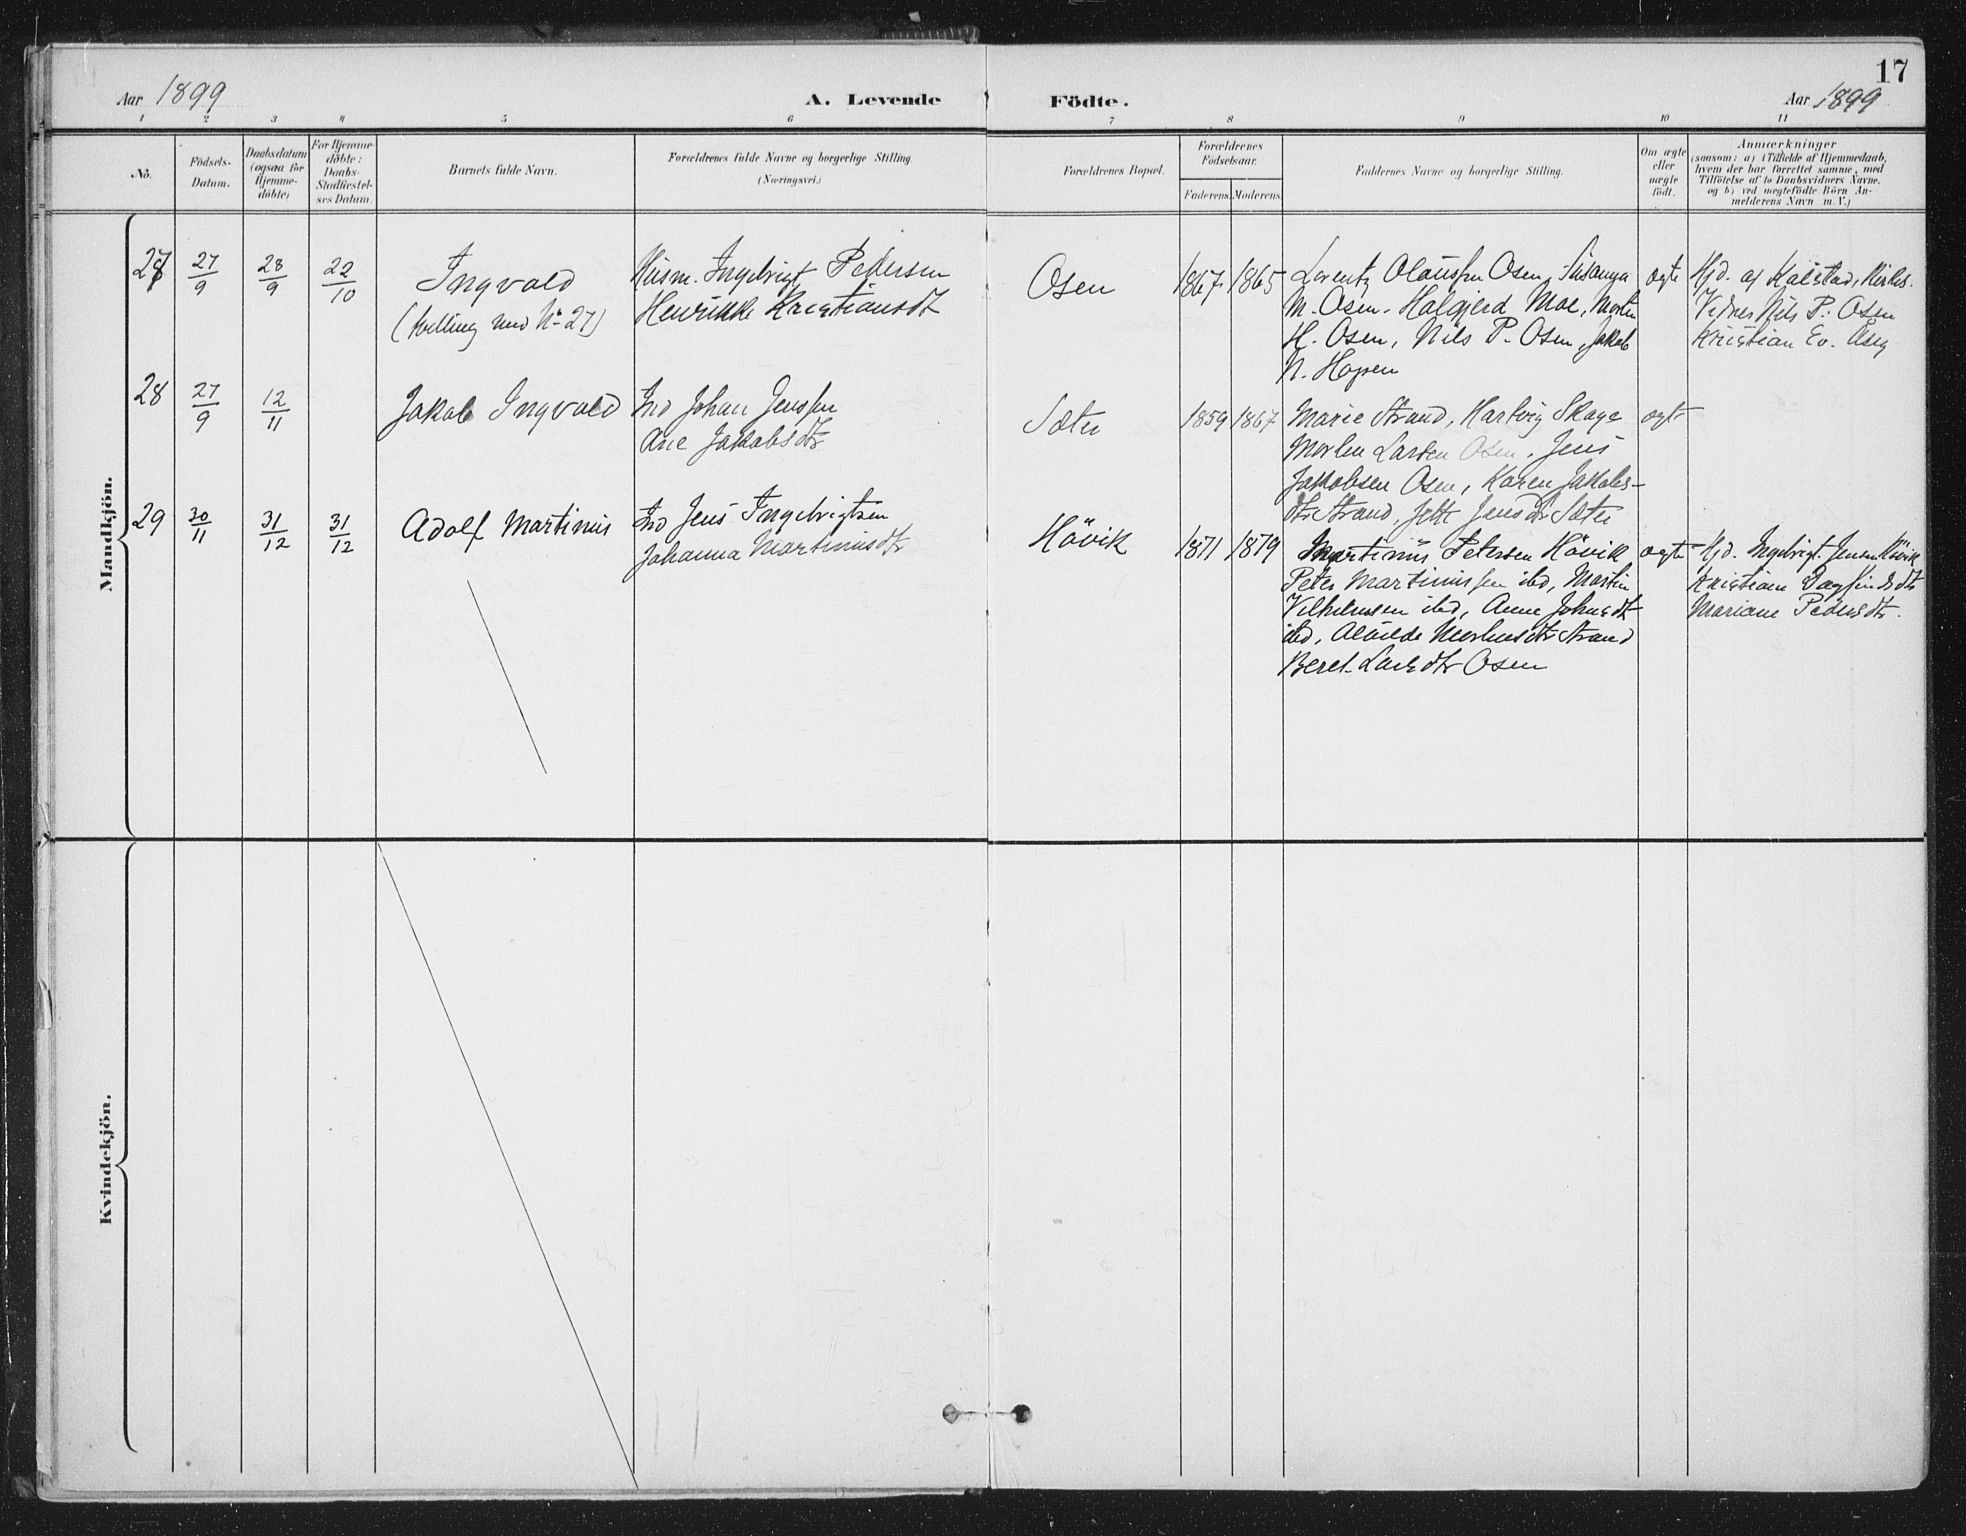 17
Aar 1899
A. Levende
Födte.
Aar 1899
1 2 3 4 5 6 7 8 9 10 11
No.
Födsels-
Datum.
Daabsdatum
(ogsaa for
Hjemme-
döbte)
For Hjemme-
döbte:
Daabs-
Stadfæstel-
ses Datum.
Barnets fulde Navn.
Forældrenes fulde Navne og borgerlige Stilling.
(Næringsvei.)
Forældrenes Bopæl.
Forældrenes
Födselsaar.
Faderens.
Moderens.
Faddernes Navne og borgerlige Stilling.
Om ægte
eller
uægte
födt.
Anmærkninger
(saasom: a) i Tilfælde af Hjemmedaab,
hvem der har forrettet samme, med
Tilföielse af to Daabsvidners Navne.
og b) ved uægtefödte Börn An-
melderens Navn m. V.)
Mandkjön.
27 27/9 28/9 22/10
Ingvald
(tvilling med No 27)
Husm. Ingebrigt Pedersen
Henrikke Kristiansdt
Osen
1867 1865
Lorentz Olaussen Osen, Susanna
M. Osen. Halgjerd Moe, Morten
H. Osen, Nils P. Osen, Jakob
N. Hopen
ægte
Hjd. af Kalstad, Kirkes.
Vidner Nils P. Osen
Kristian Ev. Aseg
28 27/9 12/11
Jakob Ingvald
Ind Johan Jenssen
Ane Jakobsdtr
Sæter
1859 1867
Marie Strand, Hartvig Skage
Morten Larsen Osen, Jens
Jakobsen Osen, Karen Jakobs-
dtr Strand, Jette Jensdtr Sæter
ægt
29 30/11 31/12 31/12
Adolf Martinus
Ind Jens Ingebrigtsen
Johanna Martinusdtr
Hövik
1871 1879
Martinus Petersen Hövik
Peter Martinussen ibd, Martin
Vilhelmsen ibd, Anne Johnsdt
ibd, Alvilde Mortensdtr Strand
Beret Larsdtr Osen
ægte
Hjd. Ingebrigt Jensen Hövik
Kristiane Dagfindsdtr
Mariane Pedersdtr.
Kvindekjön.